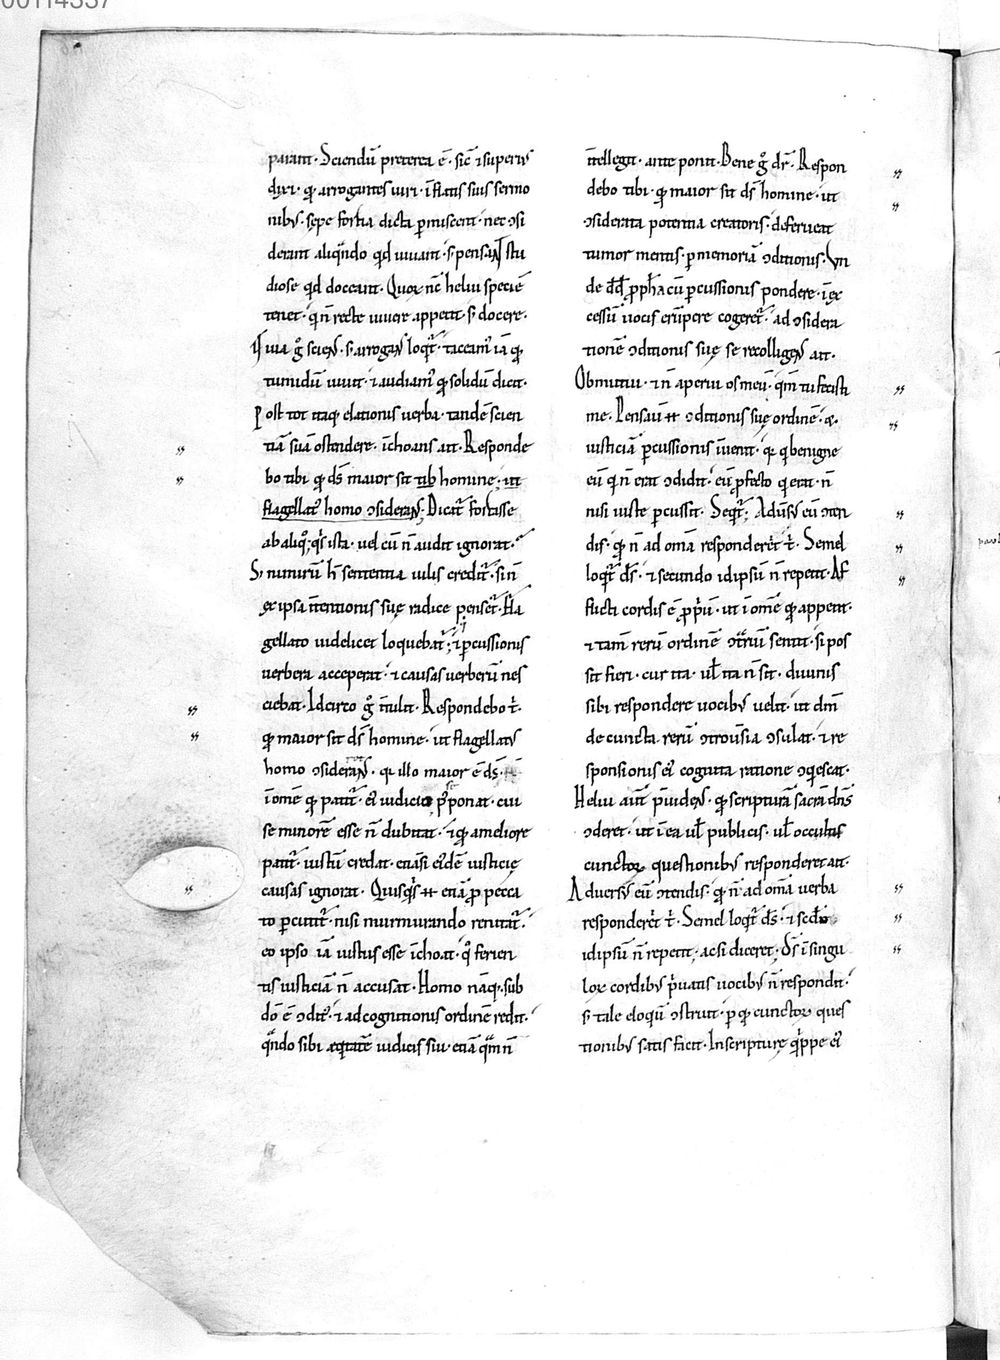 00114337
parant· Sciendū preterea ē· sic̄ ⁊ superiꝰ
dixi· qꝫ arrogantes uiri· īflatis suis sermo
nibꝫ· sępe fortia dicta ꝑmiscent· nec ɔsi
derant aliqn̄do qd̄ uiuant· s; pensant stu
diose qd̄ doceant· Quoꝝ nc̄ heliu speciē
tenet· q n̄ recte uiuere appetit· s; docere·
uia gͦ sciens· s; arrogans loqt̄· taceamꝰ iā qꝫ
tumidū uiuit· ⁊ audiamꝰ qꝫ solidū dicit·
Post tot itaqꝫ elationis uerba· tandē scien
tiā suā ostendere· īchoans ait· Responde
bo tibi qꝫ ds̄ maior sit homine· ut
flagellatꝰ homo ɔsiderans· Dicat̄ fortasse
ab aliqͦ; q̄s ista· uel cū n̄ audit ignorat·
S; nimirū h̄ sententia uilis credit̄· si n̄
ex ipsa īntentionis suę radice penset̄· Fla
gellato uidelicet loquebat̄; ⁊ ꝑcussionis
uerbera acceperat· ⁊ causas uerberū nes
ciebat· Idcirco gͦ īntulit· Respondebo t̄·
qꝫ maior sit ds̄ homine· ut flagellatꝰ
homo ɔsiderans· qꝛ illo maior ē ds̄·
ī om̄e qꝫ patit̄· eiꝰ iudiciū p̄ponat· cui
se minorē esse n̄ dubitat· ⁊ qꝫ a meliore
patit̄· iustū credat· etiāsi eidē iusticię
causas ignorat· Quisq̄s .n. etiā pro pecca
to ꝑcutit̄· nisi murmurando renitat̄·
eo ipso iā iustus esse īchoat· qͦ ferien
tis iusticiā n̄ accusat· Homo nāqꝫ sub
dō ē ɔditꝰ· ⁊ ad cognitionis ordinē redit·
qn̄do sibi equitatē iudicis sui· etiā qm̄ n̄
īntellegit· ante ponit· Bene gͦ dr̄· Respon
debo tibi· qꝫ maior sit ds̄ homine· ut
ɔsiderata potentia creatoris· deferueat
tumor mentis· ꝑ memoriā ɔditionis· Vn
de dd̄ propha cū ꝑcussionis pondere· ī ex
cessū uocis erūpere coger̄et· ad ɔsidera
tionē ɔditionis suę se recolligens ait·
Obmutui· ⁊ n̄ aperui os meū· qm̄ tu fecisti
me. Pensauit .n. ɔditionis suę ordinē· ⁊
iusticiā ꝑcussionis īuenit· qꝛ qi benigne
eū q n̄ erat ɔdidit· eū ꝓfecto q erat· n̄
nisi iuste ꝑcussit· Seqt̄; Aduersꝰ eū ɔten
dis· qꝫ n̄ ad om̄a responderit t̄· Semel
loqt̄ ds̄· ⁊ secundo idipsū n̄ repetit· Af
flicti cordis ē ꝓpriū· ut ī om̄e qꝫ appetit·
⁊ tam̄ rerū ordinē ɔtrariū sentit· si pos
sit fieri· cur ita· ul̄ ita n̄ sit· diuinis
sibi respondere uocibꝫ uelit· ut dn̄m
de cuncta rerū ɔtrouersia ɔsulat· ⁊ re
sponsionis eiꝰ cognita ratione ɔqiescat·
Heliu aut̄ p̄uidens· qꝫ scripturā sacrā dn̄s
ɔderet· ut ī ea ul̄ publicis· ul̄ occultis
cunctoꝝ questionibꝫ responderet ait·
Aduersꝰ eū ɔtendis· qꝫ n̄ ad om̄a uerba
responderit t̄· Semel loqt̄ ds̄· ⁊ scd̄o
idipsū n̄ repetit; ac si diceret; Ds̄ ī singu
loꝝ cordibꝫ p̄uatis uocibꝫ n̄ respondit·
s; tale eloqiū ɔstruit· ꝑ qꝫ cunctoꝝ ques
tionibꝫ satis faciat· In scripturę q̄ppe eiꝰ